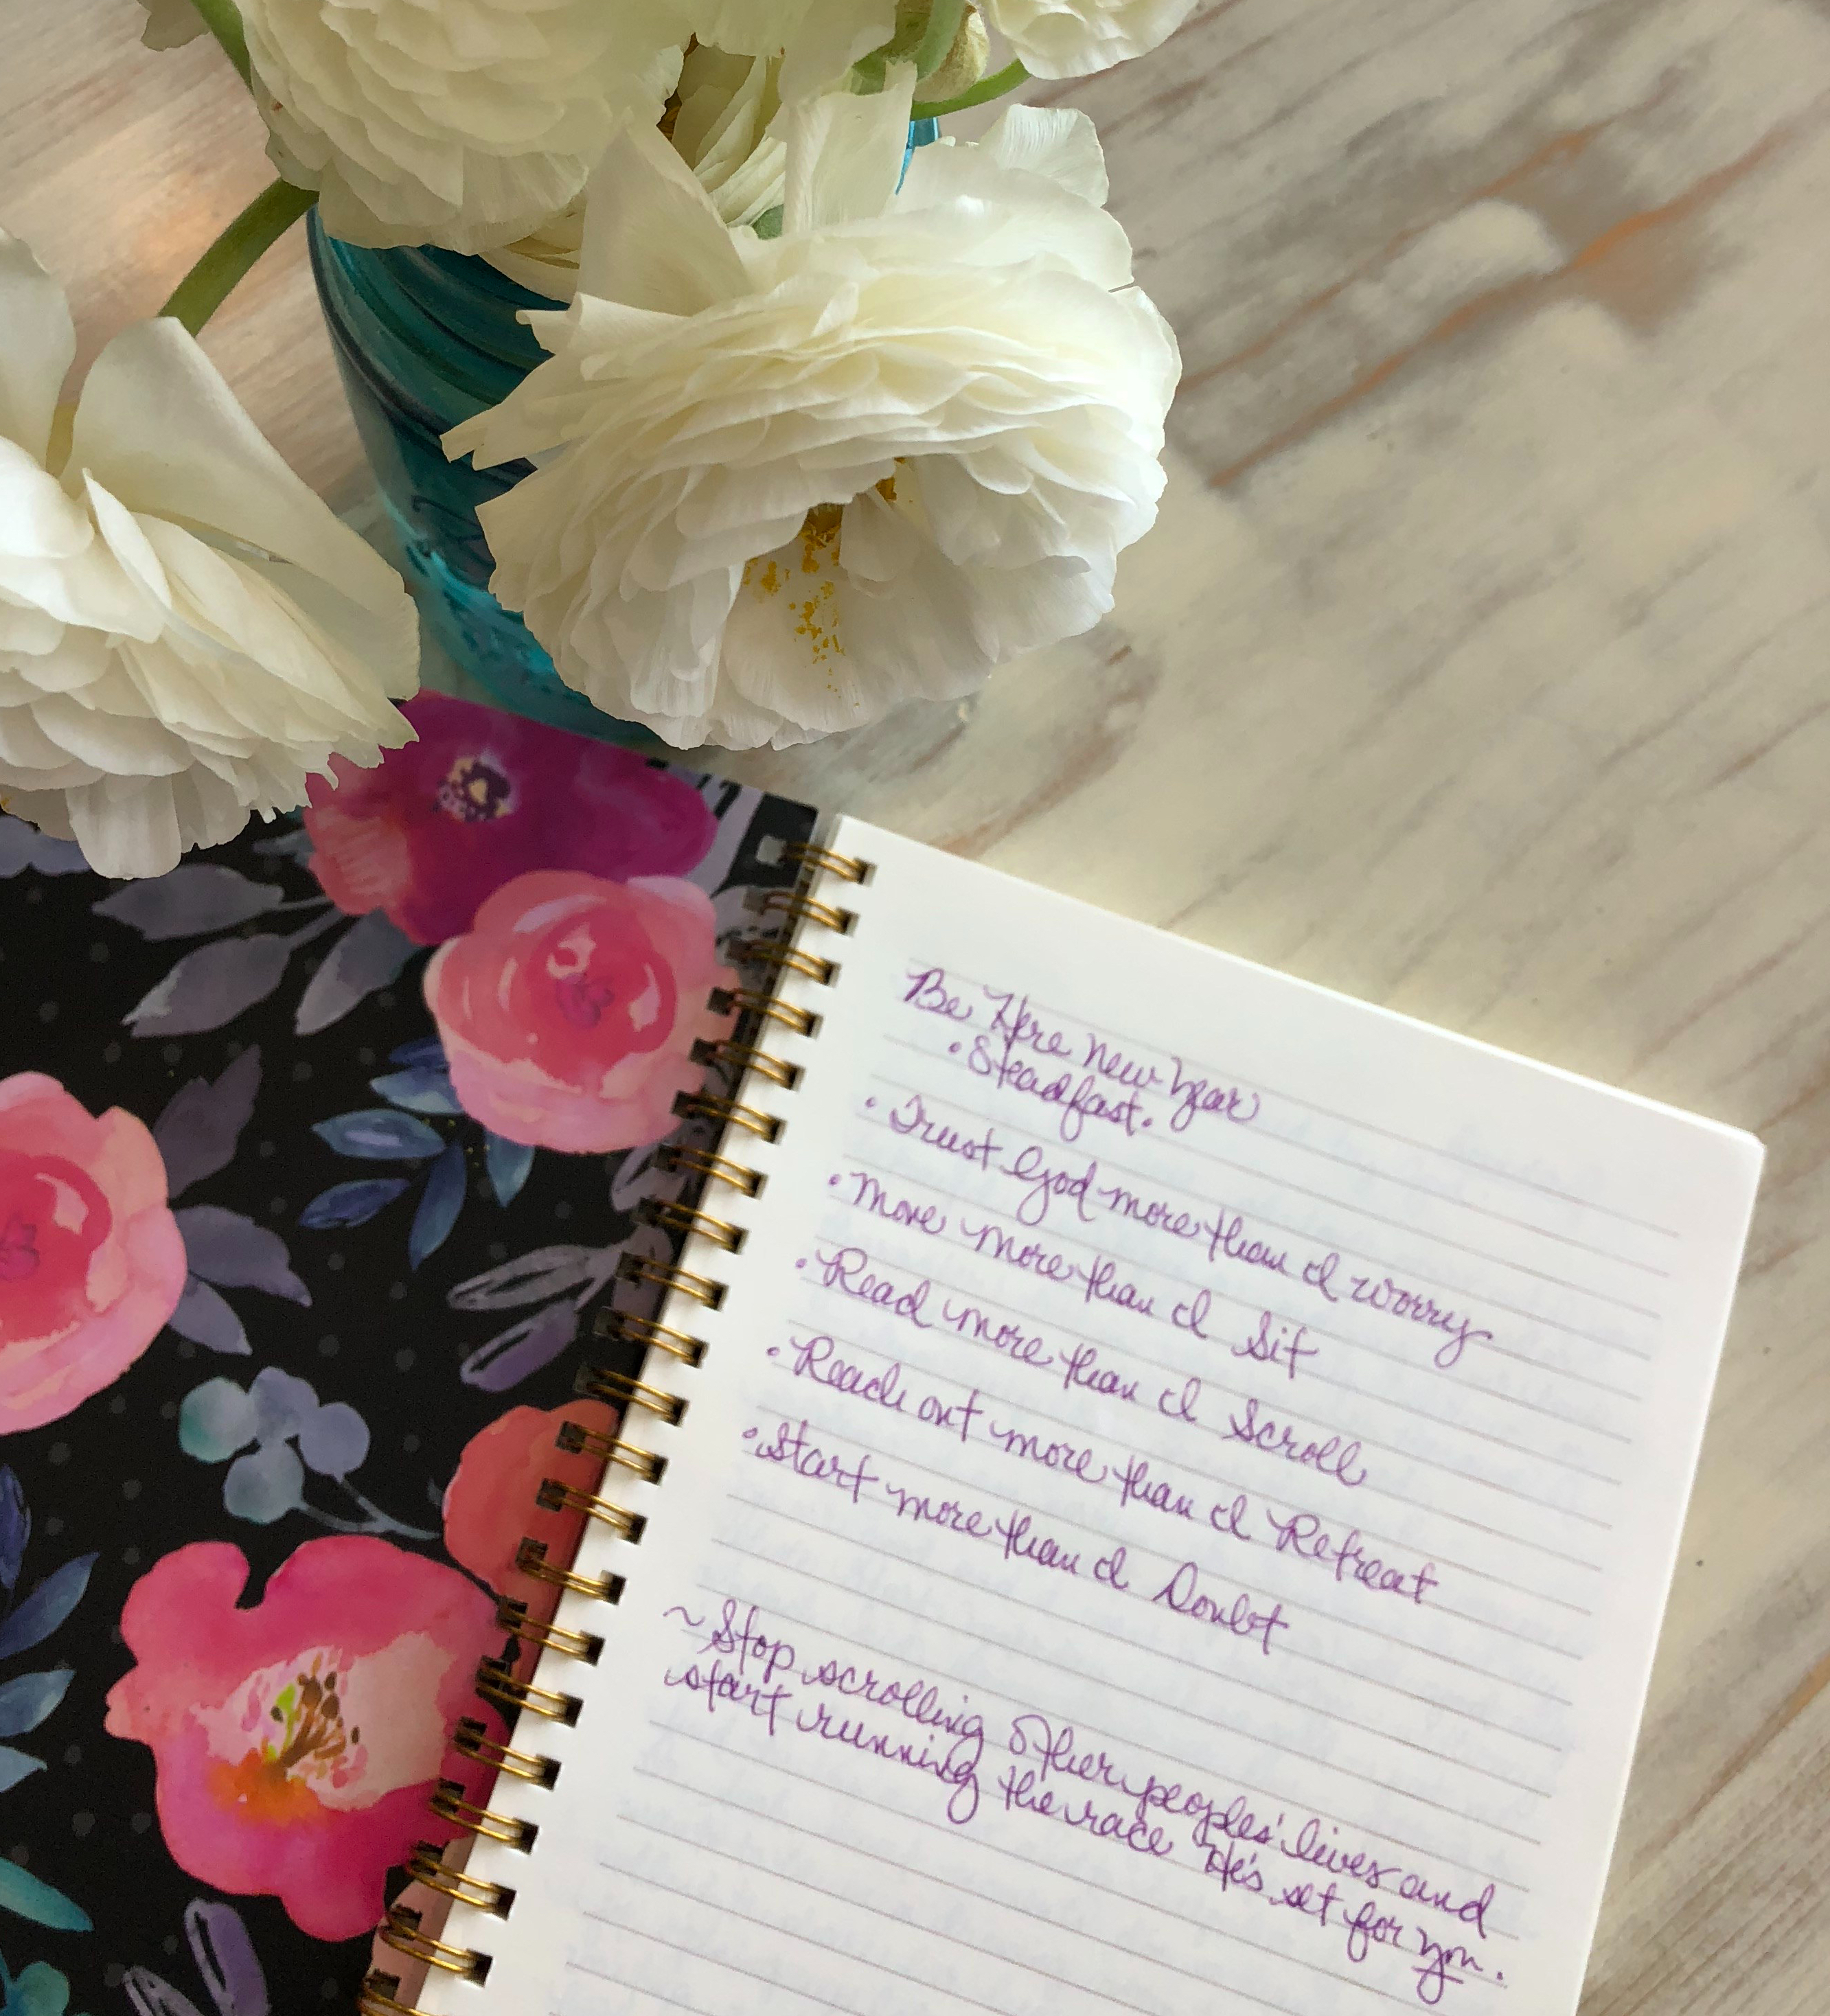 Be Here New Year
• Steadfast.
• Trust God more than I worry
• Move more than I Sit
• Read more than I Scroll
• Reach out more than I Retreat
• Start more than I Doubt
~ Stop scrolling other peoples' lives and
start running the race He's set for you.